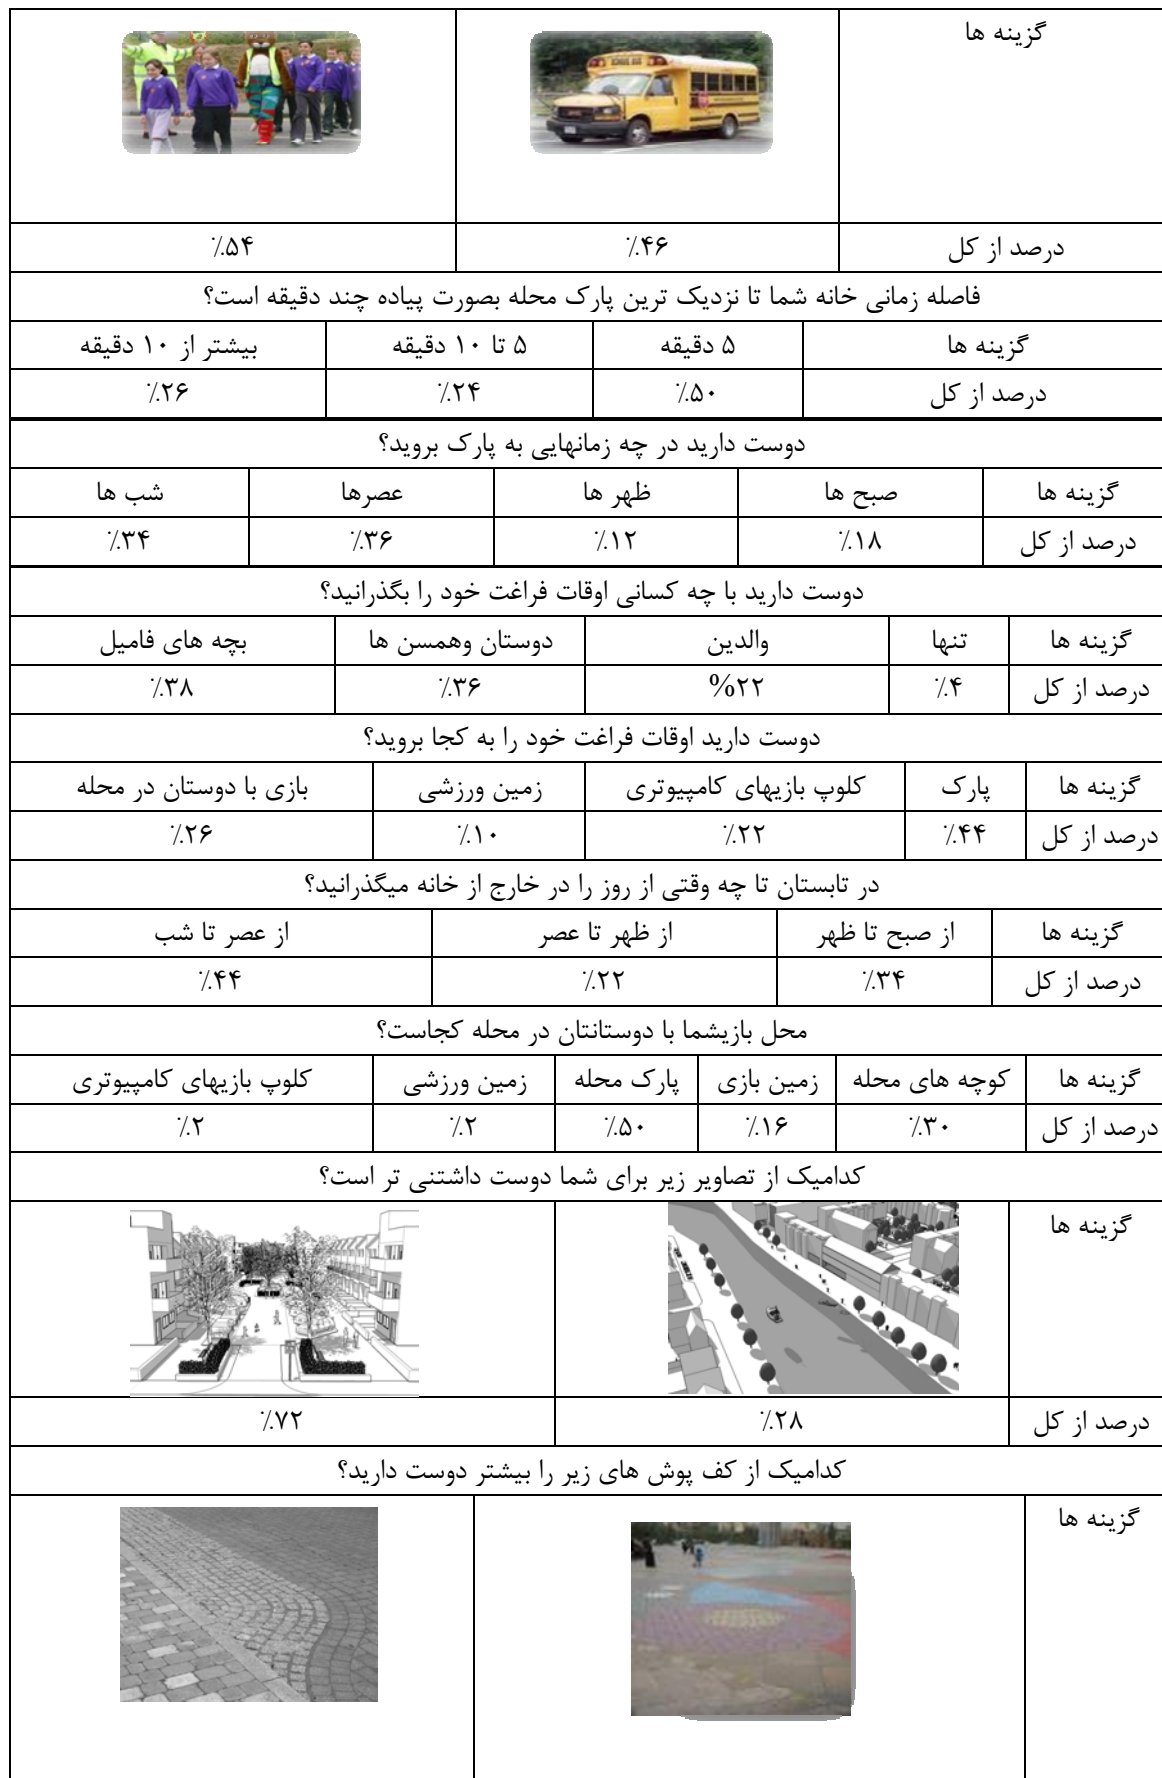 گزینه ها
درصد از کل ٪۴۶ ٪۵۴
فاصله زمانی خانه شما تا نزدیک ترین پارک محله بصورت پیاده چند دقیقه است؟
گزینه ها ۵ دقیقه ۵ تا ۱۰ دقیقه بیشتر از ۱۰ دقیقه
درصد از کل ٪۵۰ ٪۲۴ ٪۲۶
دوست دارید در چه زمانهایی به پارک بروید؟
گزینه ها صبح ها ظهر ها عصرها شب ها
درصد از کل ٪۱۸ ٪۱۲ ٪۳۶ ٪۳۴
دوست دارید با چه کسانی اوقات فراغت خود را بگذرانید؟
گزینه ها تنها والدین دوستان وهمسن ها بچه های فامیل
درصد از کل ٪۴ %۲۲ ٪۳۶ ٪۳۸
دوست دارید اوقات فراغت خود را به کجا بروید؟
گزینه ها پارک کلوپ بازیهای کامپیوتری زمین ورزشی بازی با دوستان در محله
درصد از کل ٪۴۴ ٪۲۲ ٪۱۰ ٪۲۶
در تابستان تا چه وقتی از روز را در خارج از خانه میگذرانید؟
گزینه ها از صبح تا ظهر از ظهر تا عصر از عصر تا شب
درصد از کل ٪۳۴ ٪۲۲ ٪۴۴
محل بازیشما با دوستانتان در محله کجاست؟
گزینه ها کوچه های محله زمین بازی پارک محله زمین ورزشی کلوپ بازیهای کامپیوتری
درصد از کل ٪۳۰ ٪۱۶ ٪۵۰ ٪۲ ٪۲
کدامیک از تصاویر زیر برای شما دوست داشتنی تر است؟
گزینه ها
درصد از کل ٪۲۸ ٪۷۲
کدامیک از کف پوش های زیر را بیشتر دوست دارید؟
گزینه ها